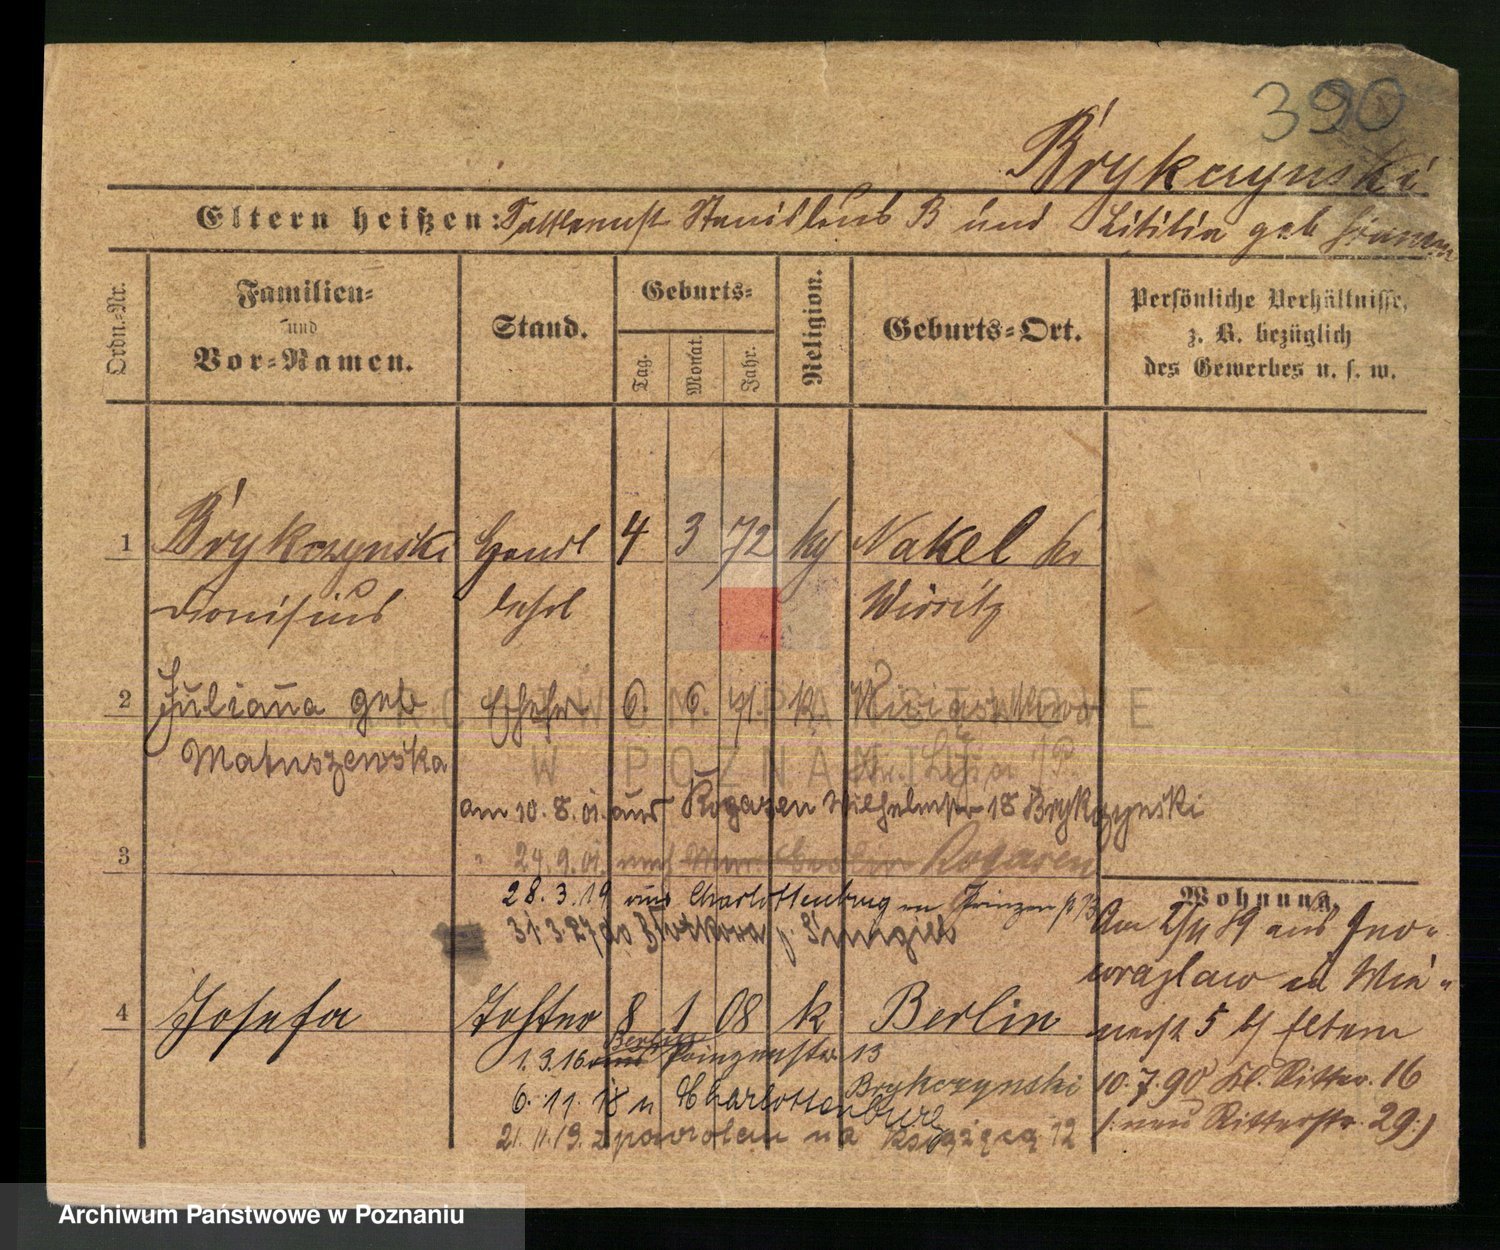 390
Brykczynski
Eltern heißen: Stanislaus B und geb
Ordn.-Nr.
Familien- und Vor-Namen.
Stand.
Geburts-
Tag. Monat. Jahr.
Religion.
Geburts-Ort.
Persönliche Verhältnisse, z. B. bezüglich des Gewerbes u. s. w.
1 Brykczynski Handl 4 3 72 Nakel Kr
Dionisius lehrl Wirsitz
2 Juliana geb Ehefr 6. 6. 71. k.
Matuszewska
am 10.8.01. aus Rogasen Wilhelmstr 18 Brykczynski
3 " 24.9.01. nach Rogasen
28.3.19 aus Charlottenburg Prinzenstr 13
31.3.27
4 Josefa Tochter 8 1 08 k Berlin
1.3.16 Berlin Prinzenstr. 13
Brykczynski
6.11.18 n Charlottenburg
21.11.19. z powrotem na Książęcą 12
Wohnung.
Am 2/4 89 aus Ino-
wrazlaw
5 b/ Eltern
10.7.90 Kl. Ritter. 16
(: neu Ritterstr. 29:)
ARCHIWUM PAŃSTWOWE
W POZNANIU
Archiwum Państwowe w Poznaniu